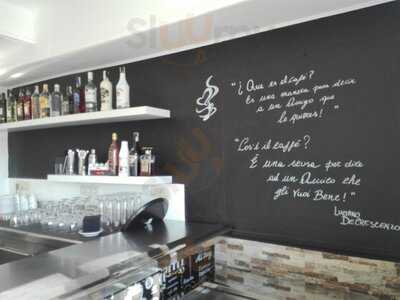 "¿Que es el café?
Es una manera para decir
a un Amigo que
lo quieres!"
"Cos'è il caffè?
È una scusa per dire
ad un Amico che
gli vuoi Bene!"
Luciano
De Crescenzo